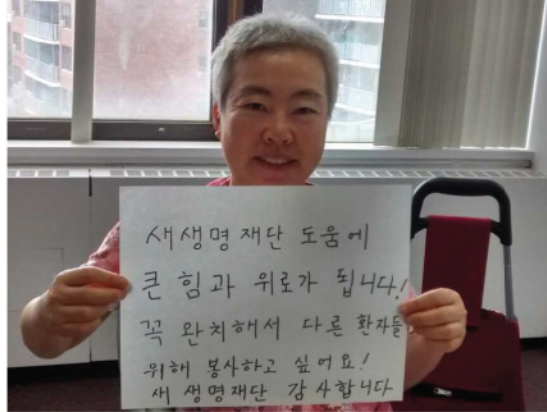 새생명재단 도움에
큰 힘과 위로가 됩니다!
꼭 완치해서 다른 환자들
위해 봉사하고 싶어요!
새 생명재단 감사합니다